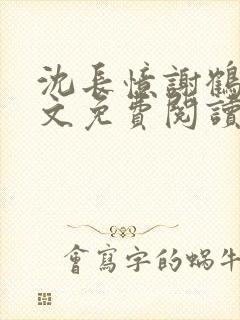 沈長憶謝鶴
文免費閱讀
會寫字的蝸牛